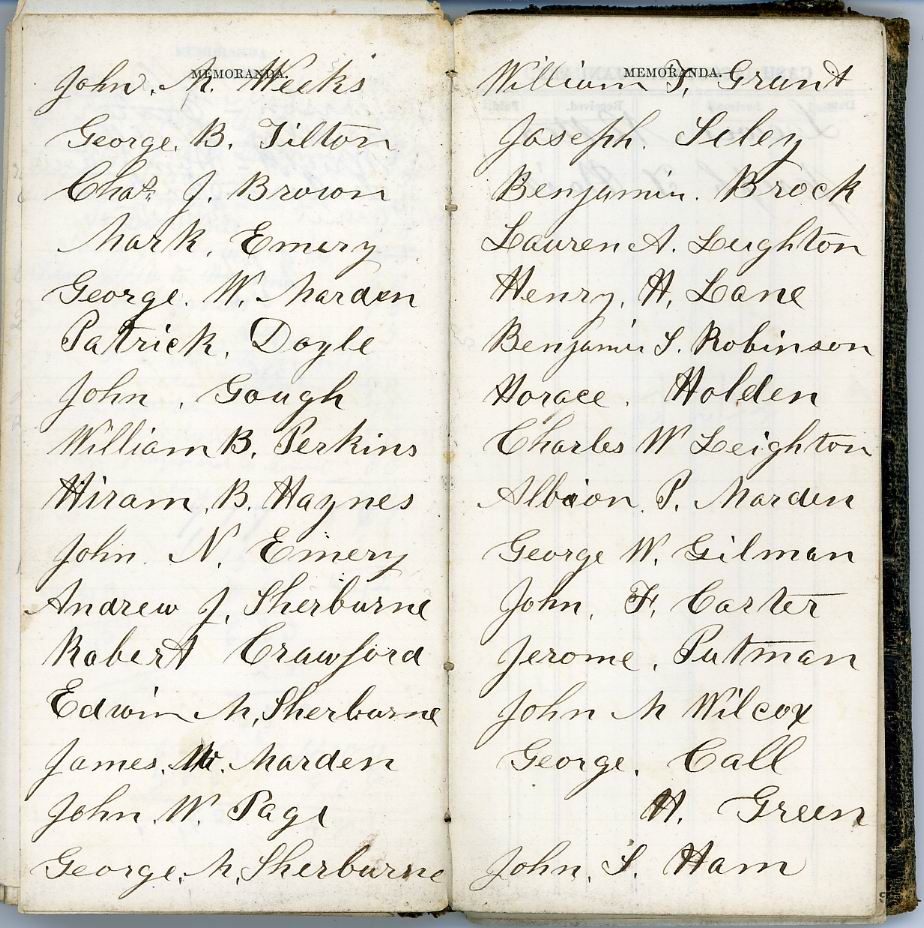 MEMORANDA.
John. M. Weeks
George. B. Tilton
Chas. J. Brown
Mark. Emery
George. W. Marden
Patrick. Doyle
John. Gough
William B. Perkins
Hiram. B. Haynes
John N. Emery
Andrew J. Sherburne
Robert Crawford
Edwin M. Sherburne
James. M. Marden
John. W. Page
George. M. Sherburne
MEMORANDA.
William F. Grant
Joseph. Seley
Benjamin. Brock
Lauren A. Leighton
Henry. H. Lane
Benjamin S. Robinson
Horace. Holden
Charles W Leighton
Albion P. Marden
George W. Gilman
John. F. Carter
Jerome. Putman
John M Wilcox
George. Call
H. Green
John. S. Ham